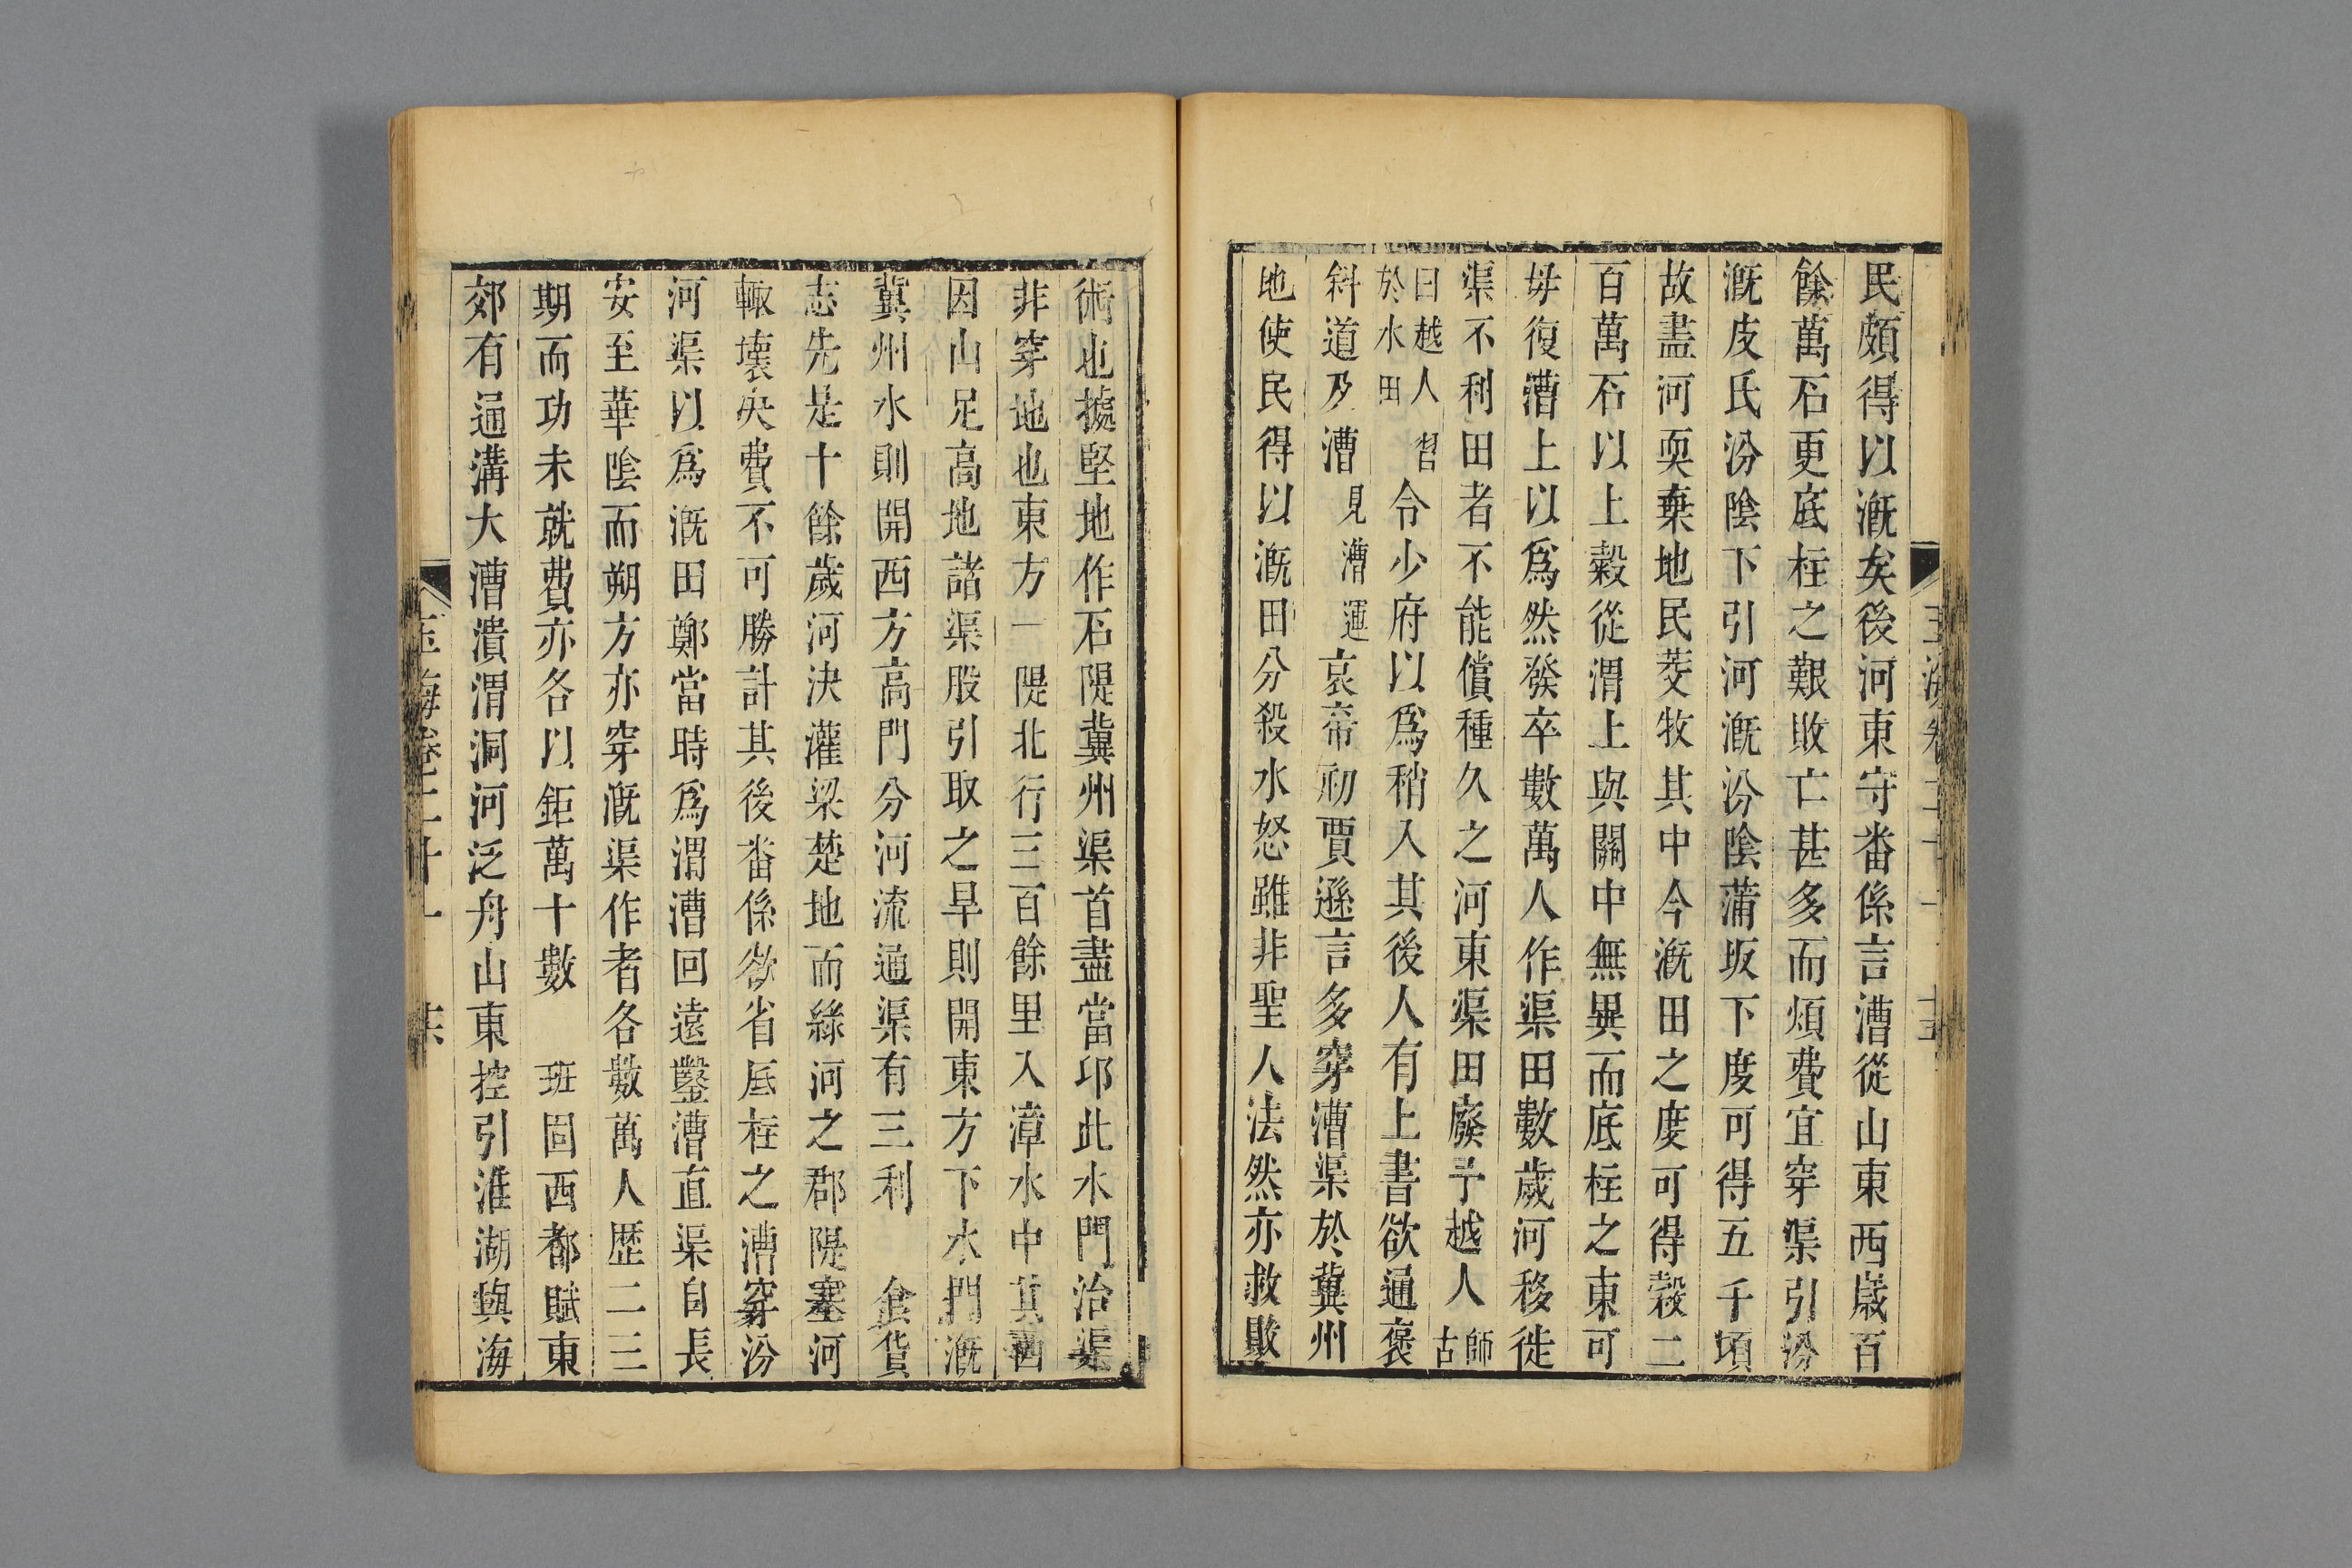 玉海卷二十一 十五
民頗得以漑矣後河東守番係言漕從山東西歲百
餘萬石更底柱之艱敗亡甚多而煩費宜穿渠引汾
漑皮氏汾陰下引河漑汾陰蒲坂下度可得五千頃
故盡河耎棄地民茭牧其中今漑田之度可得穀二
百萬石以上穀從渭上與關中無異而底柱之東可
毋復漕上以爲然發卒數萬人作渠田數歲河移徙
渠不利田者不能償種久之河東渠田廢予越人師古
曰越人習於水田令少府以爲稍入其後人有上書欲通褒
斜道及漕見漕運哀帝初賈遜言多穿漕渠於冀州
地使民得以漑田分殺水怒雖非聖人法然亦救敗
術也據堅地作石隄冀州渠首盡當卬此水門治渠
非穿地也東方一隄北行三百餘里入漳水中其西
因山足高地諸渠股引取之旱則開東方下水門漑
冀州水則開西方高門分河流通渠有三利 食貨
志先是十餘歲河決灌梁楚地而緣河之郡隄塞河
輒壞決費不可勝計其後番係欲省底柱之漕穿汾
河渠以爲漑田鄭當時爲渭漕回遠鑿漕直渠自長
安至華陰而朔方亦穿漑渠作者各數萬人歷二三
期而功未就費亦各以鉅萬十數 班固西都賦東
郊有通溝大漕潰渭洞河泛舟山東控引淮湖與海
玉海卷二十一